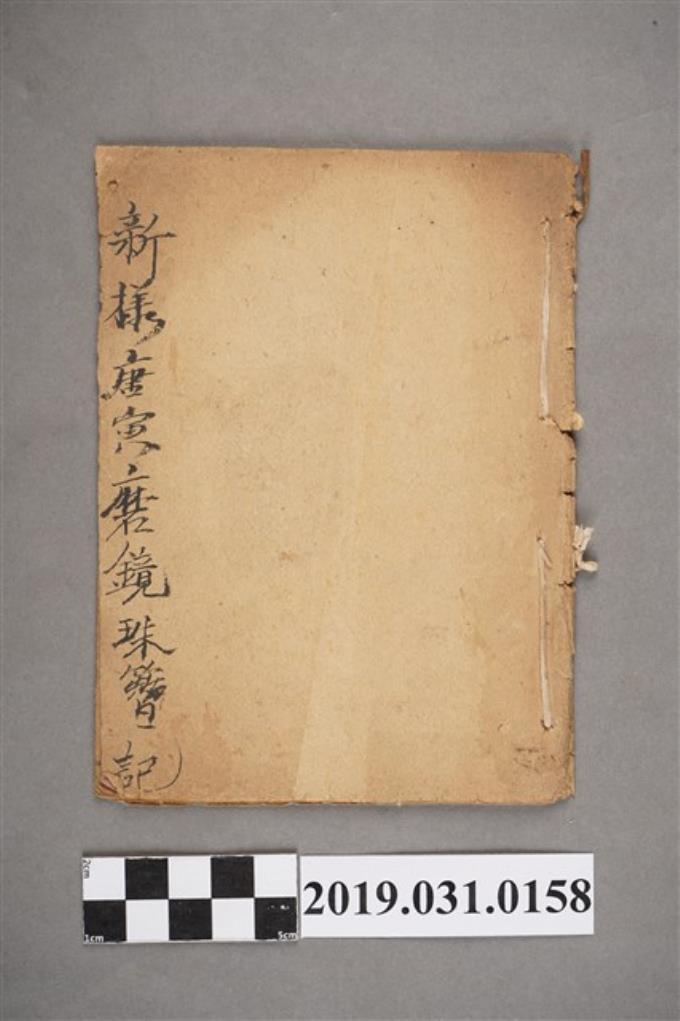 新樣唐寅磨鏡珠簪記
2cm
1cm
5cm
2019.031.0158